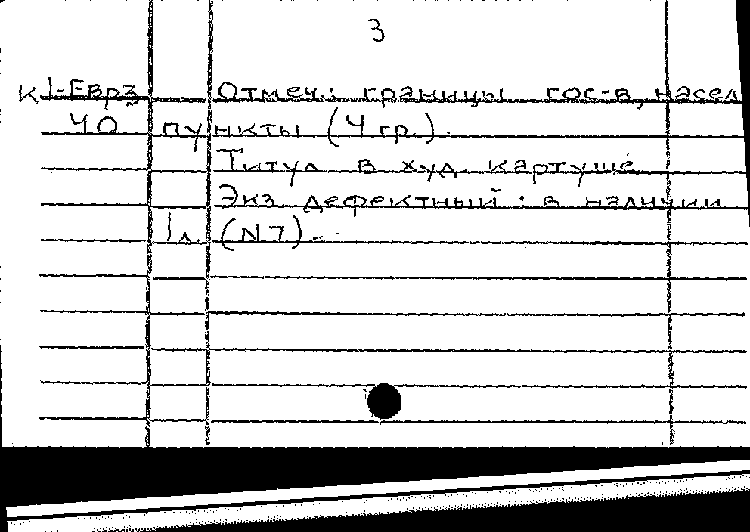 3
К1-Евр3 Отмеч.: границы гос-в, насел
40 пункты (4 гр.).
Титул в худ. картуше
Экз. дефектный: в наличии
1л. (N7).